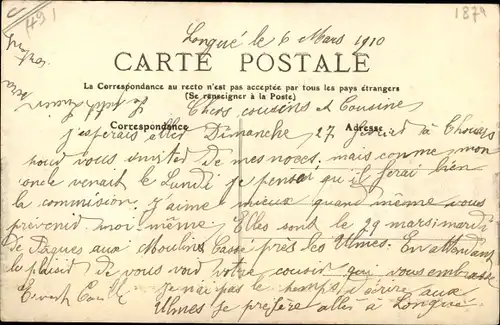 1491
1874
Longué le 6 Mars 1910
CARTE POSTALE
La Correspondance au recto n'est pas acceptée par tous les pays étrangers
(Se renseigner à la Poste)
Chers cousins et Cousine
Correspondance
Adresse
J'esperais aller Dimanche 27 à Thouars
pour vous invited de mes noces, mais comme mon
oncle venait le Lundi je pensai qu'il ferai bien
la commision, j'aime mieux quand même vous
prevenid moi-même. Elles sont le 29 mars mardi
de Paques aux Moulins Cassé près les Ulmes. En attendant
le plaisid de vous void votre cousin qui vous embrasse
je n'ai pas le temps d'écrire aux
Ulmes je préfère aller à Longué